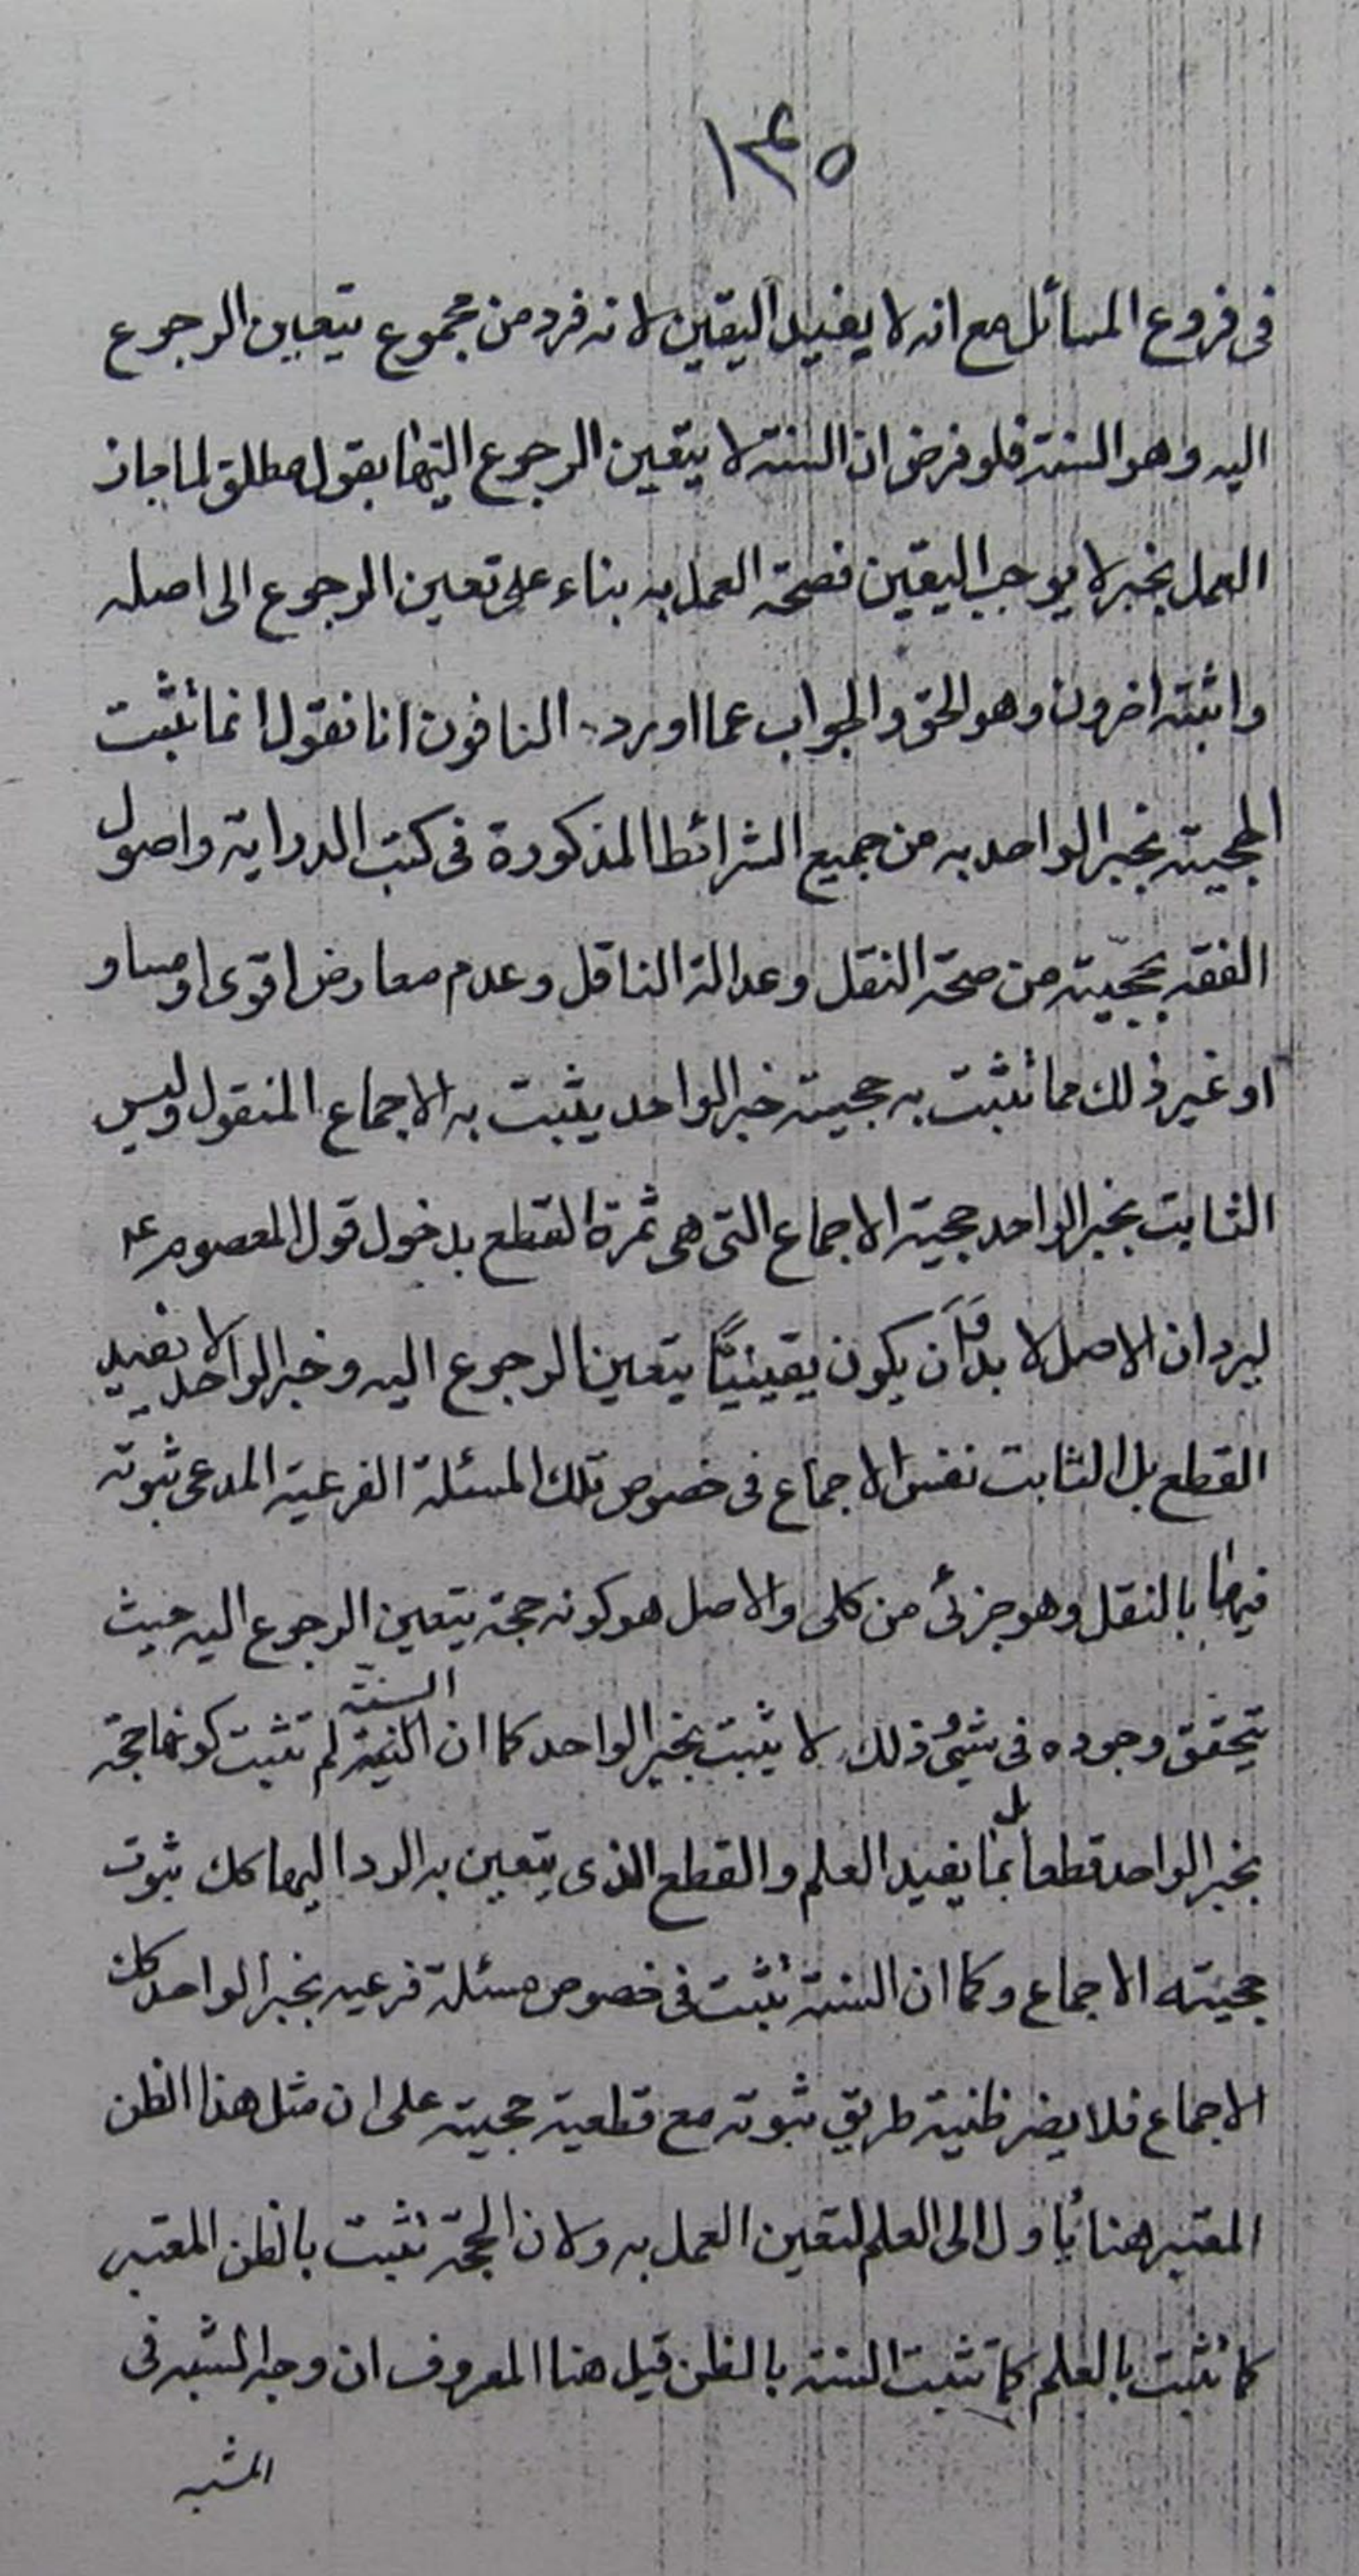 ١٣٤٥
فى فروع المسائل مع انه لا يفيد اليقين لانه فرد من مجموع يتعين الرجوع
اليه وهو السنة فلو فرض ان السنة لا يتعين الرجوع اليها بقول مطلق لما جاز
العمل بخبر لا يوجب اليقين فصحة العمل به بناء على تعين الرجوع الى اصله
واثبته اخرون وهو الحق والجواب عما اورده النافون انا نقول انما نثبت
الحجية بخبر الواحد به من جميع الشرائط المذكورة فى كتب الدراية واصول
الفقه بحجيته من صحة النقل وعدالة الناقل وعدم معارض اقوى او مساو
او غير ذلك مما نثبت به حجية خبر الواحد يثبت به الاجماع المنقول وليس
الثابت بخبر الواحد حجية الاجماع التى هى ثمرة القطع بدخول قول المعصوم ع
ليرد ان الاصل لا بد وان يكون يقينيًّا يتعين الرجوع اليه وخبر الواحد لا يفيد
القطع بل الثابت نفس الاجماع فى خصوص تلك المسئلة الفرعية المدعى ثبوته
فيها بالنقل وهو جزئى من كلى والاصل هو كونه حجة يتعين الرجوع اليه حيث
يتحقق وجوده فى شئ وذلك لا يثبت بخبر الواحد كما ان السنة لم تثبت كونها حجة
بخبر الواحد قطعا بل بما يفيد العلم والقطع الذى يتعين به الرد اليها كك ثبوت
حجيته الاجماع وكما ان السنة تثبت فى خصوص مسئلة فرعيه بخبر الواحد كك
الاجماع فلا يضر ظنية طريق ثبوته مع قطعية حجيته على ان مثل هذا الظن
المعتبر هنا يأول الى العلم لتعين العمل به ولان الحجة تثبت بالظن المعتبر
كما تثبت بالعلم كما تثبت السنة بالظن قيل هنا المعروف ان وجه الشبه فى
المشبه